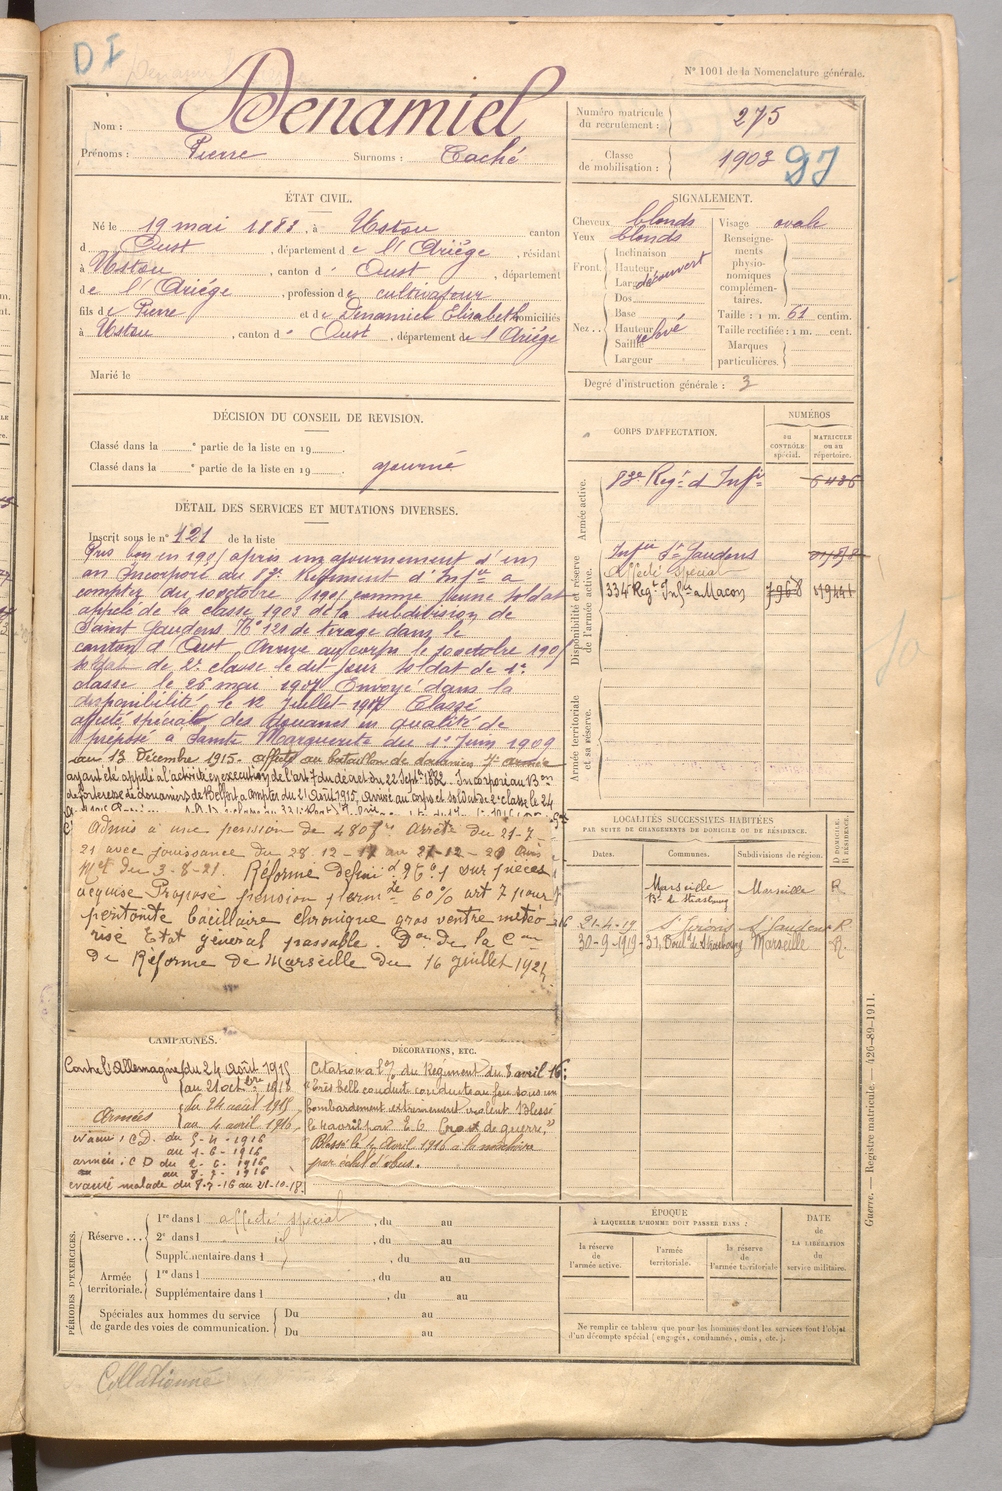 D I
N° 1001 de la Nomenclature générale.
Nom : Denamiel
Prénoms : Pierre Surnoms : Caché
Numéro matricule du recrutement : 275
Classe de mobilisation : 1903
ÉTAT CIVIL.
Né le 19 mai 1883, à Ustou canton
d Oust, département de l'Ariège, résidant
à Ustou, canton d' Oust, département
de l'Ariège, profession de cultivateur
fils de Pierre et de Dénamiel Elisabeth domiciliés
à Ustou, canton d' Oust, département de l'Ariége
Marié le
SIGNALEMENT.
Cheveux blonds Visage ovale
Yeux blonds
Front. Inclinaison Hauteur Largeur découvert
Renseignements physionomiques complémentaires.
Nez... Dos Base Hauteur Saillie Largeur relevé
Taille : 1 m. 61 centim.
Taille rectifiée : 1 m. cent.
Marques particulières.
Degré d'instruction générale : 3
DÉCISION DU CONSEIL DE REVISION.
Classé dans la e partie de la liste en 19
Classé dans la e partie de la liste en 19 ajourné
DÉTAIL DES SERVICES ET MUTATIONS DIVERSES.
Inscrit sous le n° 121 de la liste
Pris bon en 1905 après un ajournement d'un
an Incorporé au 83e Régiment d'Infie a
compter du 10 octobre 1905 comme jeune soldat
appelé de la classe 1903 de la subdivision de
Saint Gaudens N° 121 de tirage dans le
canton d'Oust Arrivé au corps le 10 octobre 1905
soldat de 2e classe le dit jour soldat de 1e
classe le 26 mai 1907 Envoyé dans la
disponibilité le 12 Juillet 1907 Classé
affecté spécial des douanes en qualité de
préposé a Sainte Marguerite du 1er Juin 1909
au 13 Décembre 1915. affecté au bataillon de douaniers 7e armée
ayant été appelé à l'activité en exécution de l'art 7 du décret du 22 Septbre 1882. Incorporé au Bon
de forteresse de douaniers de Belfort à compter du 21 Août 1915, arrivé au corps et soldat de 2e classe le 24
Admis a une pension de 480 frs Arrêté du 21-7-
21 avec jouissance du 28-12-19 au 27-12-20 Avis
Mel du 3-8-21. Réforme défini
sur pièces
acquise Proposé pension perm te 60% art 7 pour
peritonite bacillaire chronique gros ventre météo
risé Etat général passable. Don de la Con
De Réforme de Marseille du 16 Juillet 1921
CORPS D'AFFECTATION.
NUMÉROS
au CONTRÔLE spécial.
MATRICULE ou au répertoire.
Armée active.
83e Régt d'Infie 6436
Disponibilité et réserve de l'armée active.
Infie St Gaudens
Affecté spécial
334 Regt Infie a Macon 7968
Armée territoriale et sa réserve.
LOCALITÉS SUCCESSIVES HABITÉES
PAR SUITE DE CHANGEMENTS DE DOMICILE OU DE RÉSIDENCE.
Dates. Communes. Subdivisions de région. D DOMICILE. R RÉSIDENCE.
Marseille Bd de Strasbourg Marseille R
21-4-19 St Girons St Gaudens R
30-9-1919 31, Boul. de Strasbourg Marseille R.
CAMPAGNES.
Contre l'Allemagne du 24 Août 1915
au 21 octbre 1918
Armées du 24 août 1915
au 4 avril 1916
evacué : C.D. du 5-4-1916
au 1-6-1916
armées : C D du 2-6-1916
au 8-7-1916
évacué malade du 8-7-16 au 21-10-18.
DÉCORATIONS, ETC.
Citation a l'O/ du Régiment du 8 avril 16:
"Très belle conduite au feu sous un
bombardement extrêmement violent. Blessé
le 4 avril par E.O. Croix de guerre,"
Blessé le 4 Avril 1916 à la
par éclat d'obus.
PÉRIODES D'EXERCICES.
Réserve... 1re dans l affecté spécial, du au
2e dans l id, du au
Supplémentaire dans l, du au
Armée territoriale. 1re dans l, du au
Supplémentaire dans l, du au
Spéciales aux hommes du service de garde des voies de communication. Du au
Du au
ÉPOQUE
À LAQUELLE L'HOMME DOIT PASSER DANS :
la réserve de l'armée active.
l'armée territoriale.
la réserve de l'armée territoriale
DATE de LA LIBÉRATION du service militaire.
Ne remplir ce tableau que pour les hommes dont les services font l'objet
d'un décompte spécial (engagés, condamnés, omis, etc.).
Guerre. — Registre matricule. — 426-89-1911.
Collationné